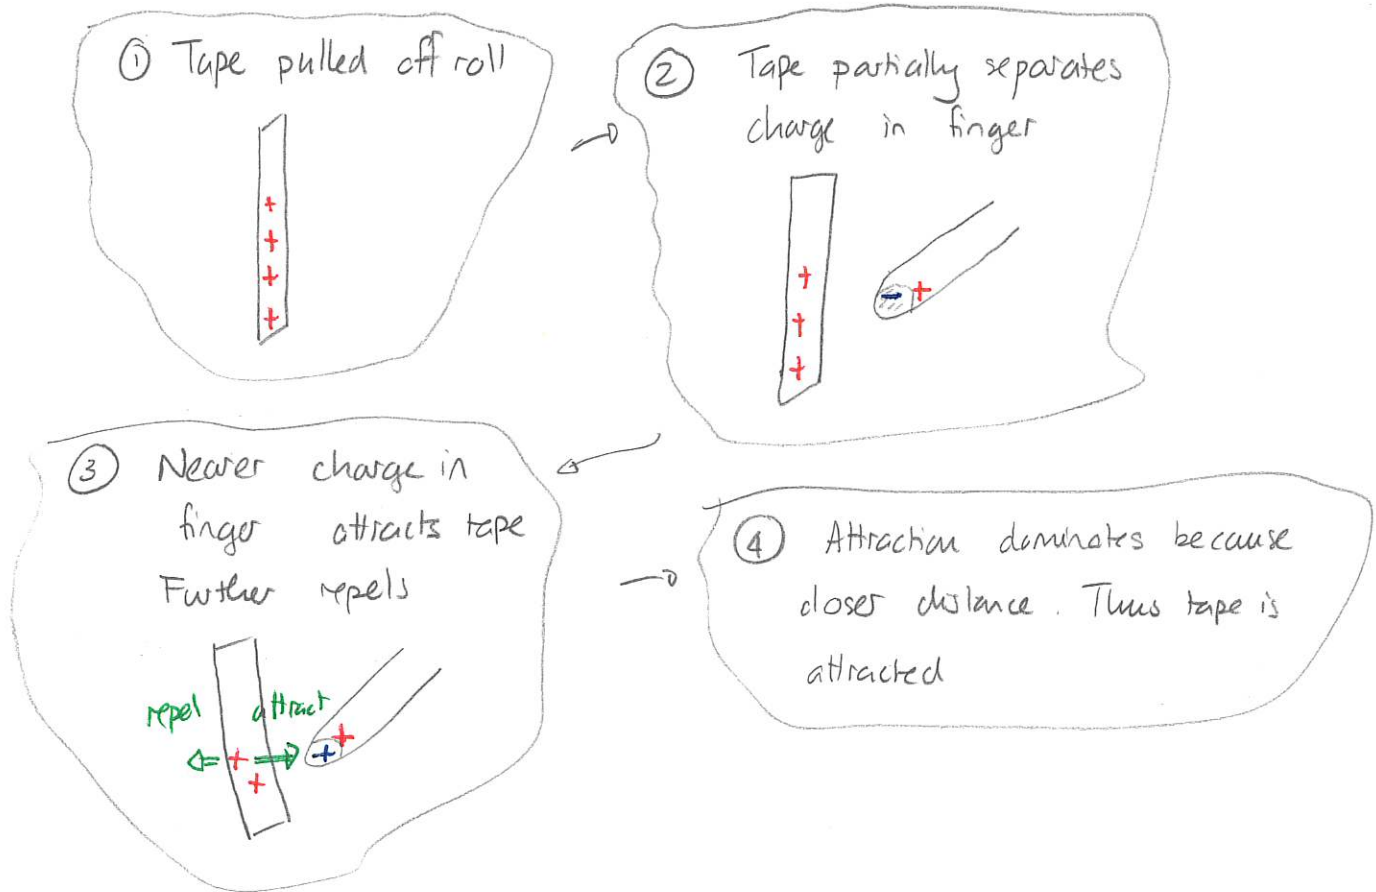 ① Tape pulled off roll
+
+
+
+
② Tape partially separates
charge in finger
+
+
+
- +
③ Nearer charge in
finger attracts tape
Further repels
repel attract
+ + +
+
④ Attraction dominates because
closer distance. Thus tape is
attracted